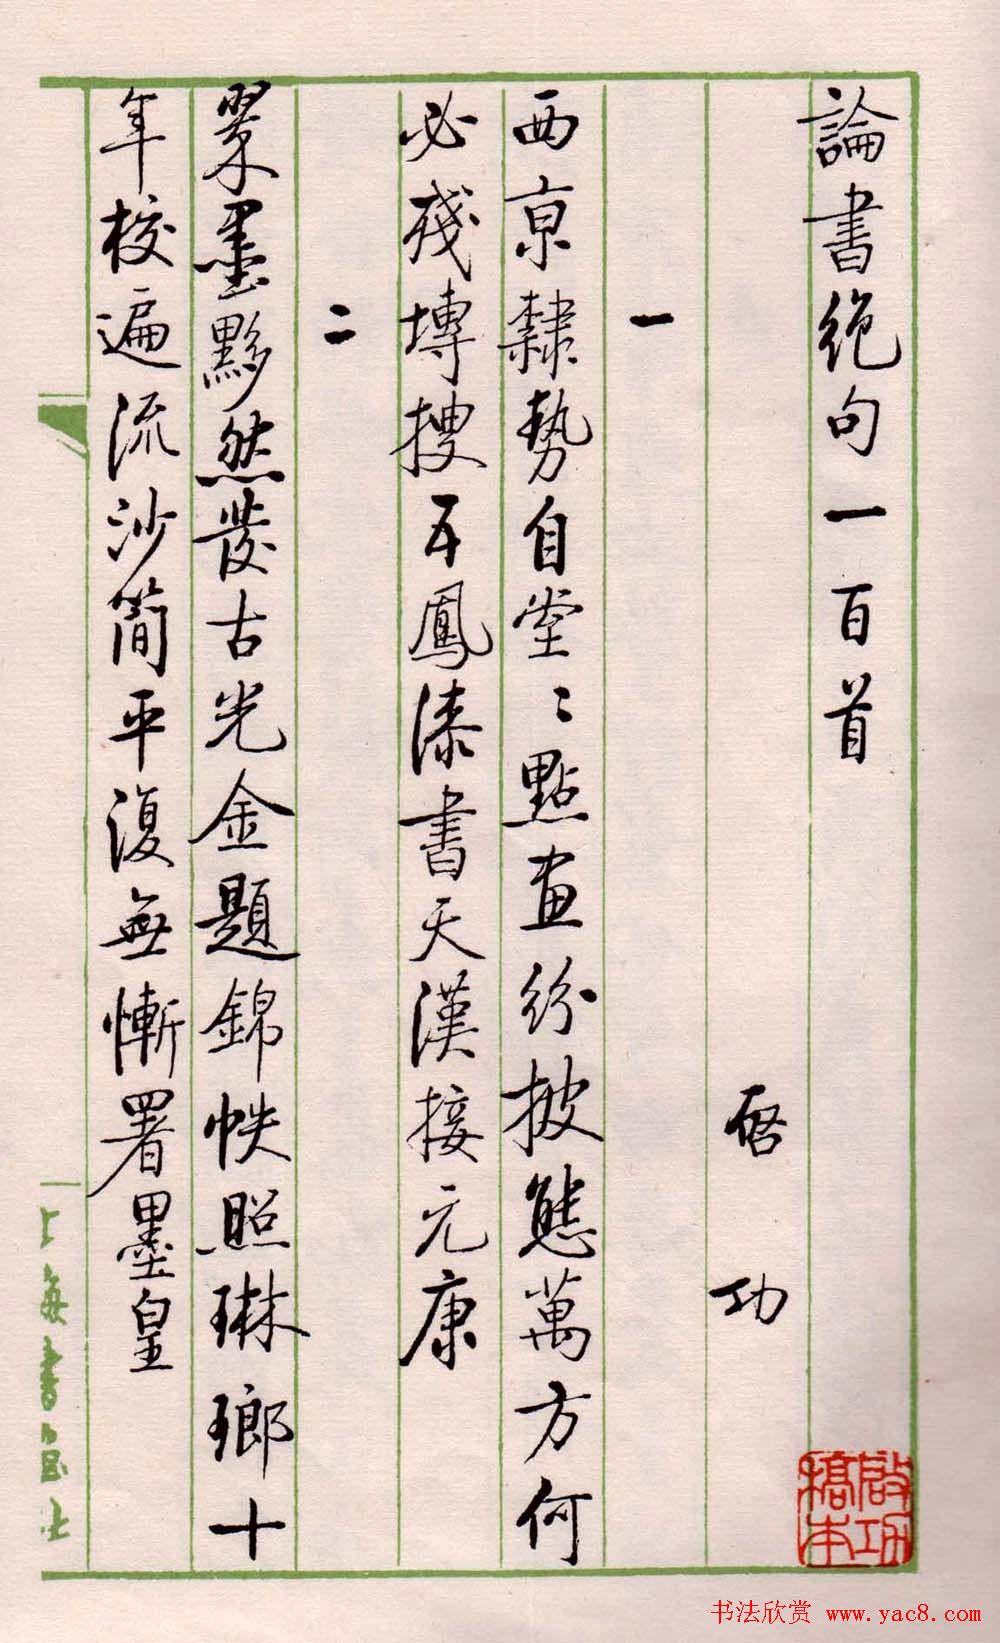 論書絶句一百首
啓功
一
西京隸勢自堂〻點畫紛披態萬方何
必殘塼搜五鳳漆書天漢接元康
二
翠墨黟然發古光金題錦帙照琳瑯十
年校遍流沙簡平復無慚署墨皇
上海書画社
啟功
稿本
书法欣赏 www.yac8.com